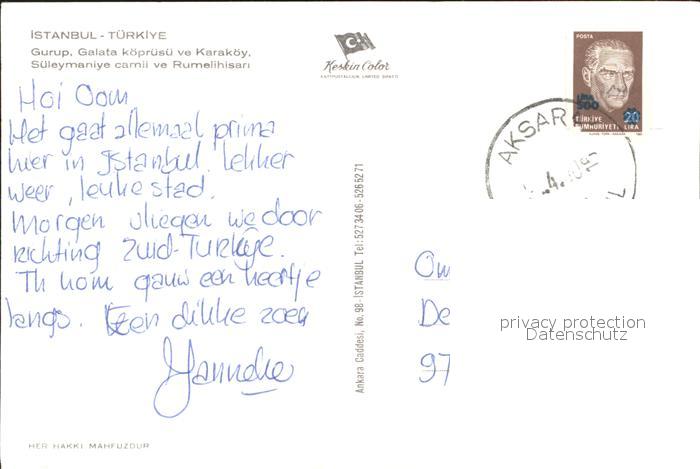 İSTANBUL - TÜRKİYE
Gurup, Galata köprüsü ve Karaköy,
Süleymaniye camii ve Rumelihisarı
Keskin Color
KARTPOSTALCILIK LIMITED ŞİRKETİ
POSTA
LİRA
500
TÜRKİYE
CUMHURİYETİ
20
LİRA
AKSARA
Hoi Oom
Het gaat allemaal prima
hier in Istanbul. Lekker
weer, leuke stad.
Morgen vliegen we door
richting Zuid-Turkije.
Ik kom gauw een keertje
langs. Een dikke zoen
Janneke
Ankara Caddesi, No. 98-İSTANBUL Tel: 5273406-5265271
De
97
privacy protection
Datenschutz
HER HAKKI MAHFUZDUR